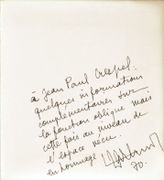 à Jean Paul Crespel.
quelques informations
complémentaires sur
la fonction oblique mais
cette fois au niveau de
l'espace vécu.
en hommage
70.